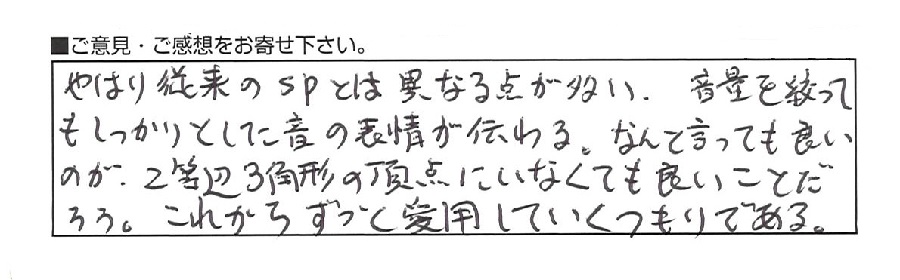 ■ご意見・ご感想をお寄せ下さい。
やはり従来のspとは異なる点が多い. 音量を絞って
もしっかりとした音の表情が伝わる。なんと言っても良い
のが. 2等辺3角形の頂点にいなくても良いことだ
ろう。これからずっと愛用していくつもりである。